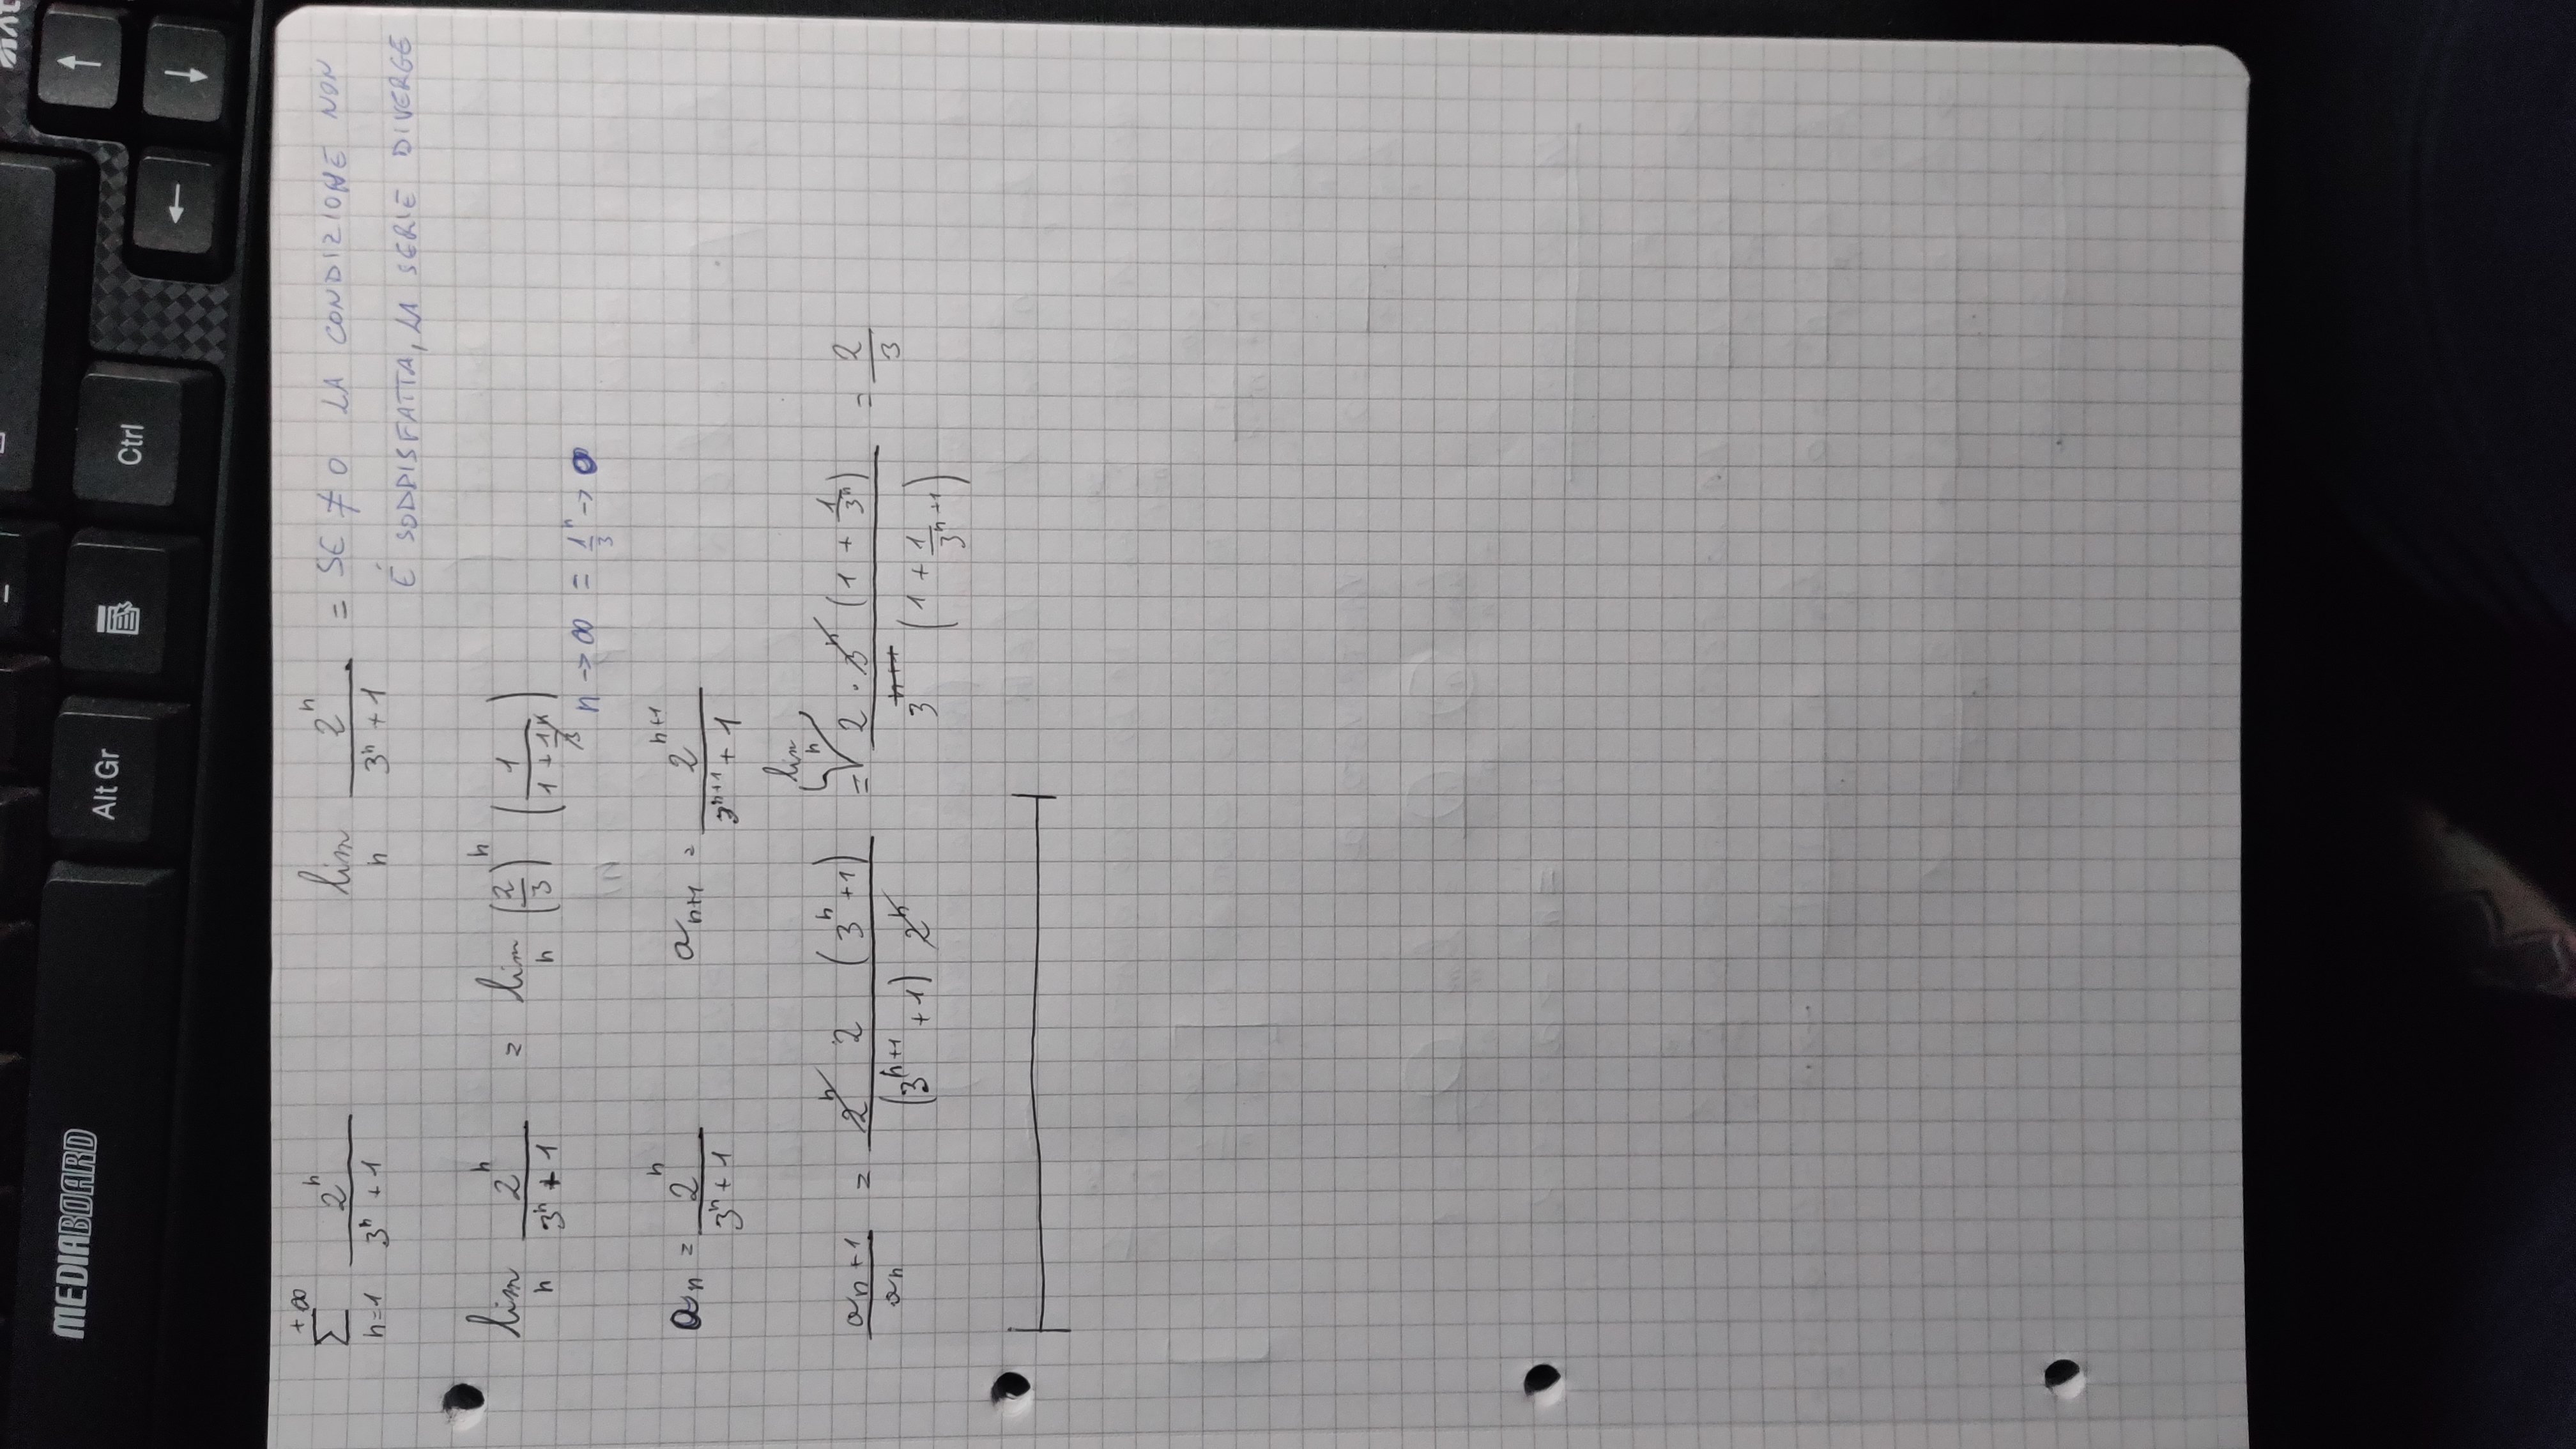 MEDIABOARD
Alt Gr
Ctrl
↑
← ↓
+∞ ∑ n=1 2^n / (3^n + 1)    lim n 2^n / (3^n + 1) = SE ≠ 0 LA CONDIZIONE NON
É SODDISFATTA, LA SERIE DIVERGE
lim n 2^n / (3^n + 1) = lim n (2/3)^n (1 / (1 + 1/3^n))
n → ∞ = 1/3^n → 0
a_n = 2^n / (3^n + 1)    a_n+1 = 2^(n+1) / (3^(n+1) + 1)
lim n
a_n+1 / a_n = 2^n 2 (3^n + 1) / ((3^(n+1) + 1) 2^n) = 2 · 3^n (1 + 1/3^n) / (3^(n+1) (1 + 1/3^(n+1))) = 2/3